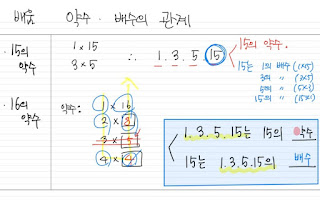 배움 약수·배수의 관계
·15의 약수
1×15
3×5
∴ 1. 3. 5. 15
15의 약수.
15는 1의 배수 (1×15)
3의 〃 (3×5)
5의 〃 (5×3)
15의 〃 (15×1)
·16의 약수
약수:
1×16
2×8
3×5
4×4
1. 3. 5. 15는 15의 약수
15는 1.3.5.15의 배수